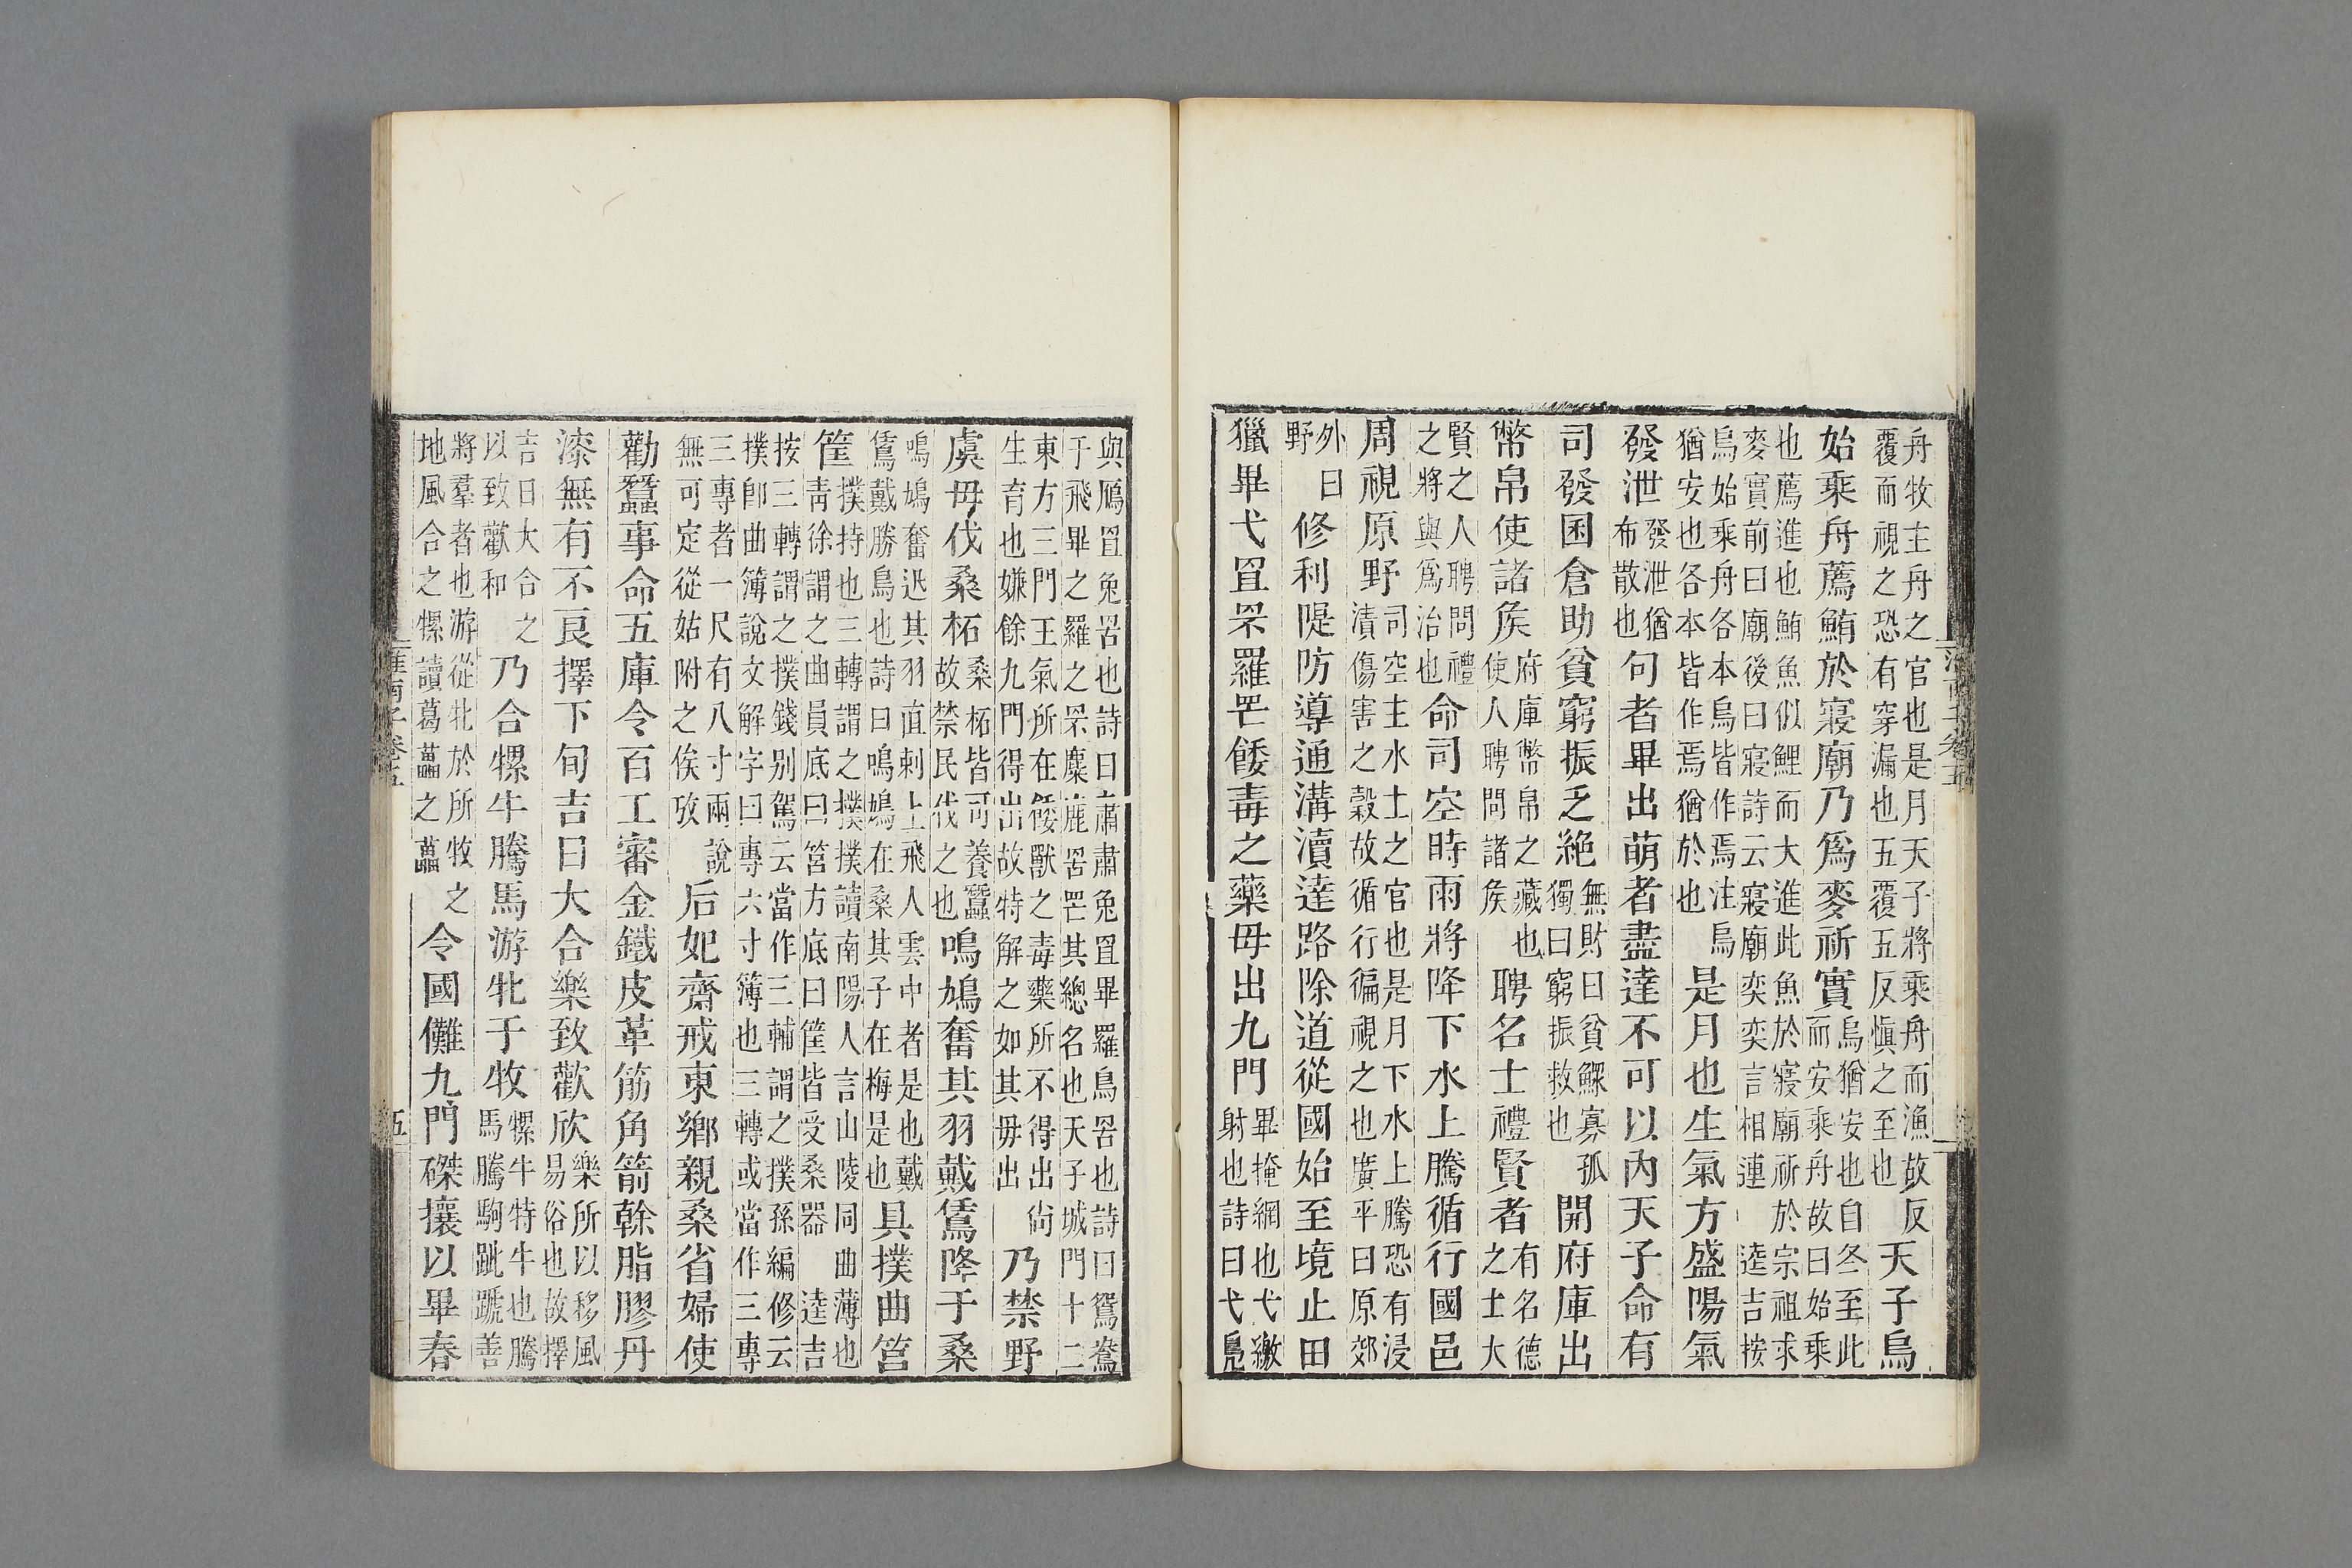 舟牧主舟之官也是月天子將乘舟而漁故反覆而視之恐有穿漏也五覆五反愼之至也天子烏
始乘舟薦鮪於寢廟乃爲麥祈實烏猶安也自冬至此而安乘舟故曰始乘
也薦進也鮪魚似鯉而大進此魚於寢廟祈於宗祖求麥實前曰廟後曰寢詩云寢廟奕奕言相連 逵吉按
烏始乘舟各本烏皆作焉注烏猶安也各本皆作焉猶於也是月也生氣方盛陽氣
發泄發泄猶布散也句者畢出萌者盡達不可以內天子命有
司發囷倉助貧窮振乏絶無財曰貧鰥寡孤獨曰窮振救也開府庫出
幣帛使諸矦府庫幣帛之藏也使人聘問諸矦聘名士禮賢者有名德之士大
賢之人聘問禮之將與爲治也命司空時雨將降下水上騰循行國邑
周視原野司空主水土之官也是月下水上騰恐有浸漬傷害之穀故循行徧視之也廣平曰原郊
外曰野修利隄防導通溝瀆達路除道從國始至境止田
獵畢弋罝罘羅罔餧毒之藥毋出九門畢掩網也弋繳射也詩曰弋鳧
與鴈罝兔罟也詩曰肅肅兔罝畢羅鳥罟也詩曰鴛鴦于飛畢之羅之罘麋鹿罟罔其總名也天子城門十二
東方三門王氣所在餧獸之毒藥所不得出尙生育也嫌餘九門得出故特解之如其毋出乃禁野
虞毋伐桑柘桑柘皆可養蠶故禁民伐之也鳴鳩奮其羽戴鵀降于桑
鳴鳩奮迅其羽直刺上飛人雲中者是也戴鵀戴勝鳥也詩曰鳴鳩在桑其子在梅是也具撲曲筥
筐撲持也三轉謂之撲撲讀南陽人言山陵同曲薄也靑徐謂之曲員底曰筥方底曰筐皆受桑器 逵吉
按三轉謂之撲錢別駕云當作三輔謂之撲孫編修云撲卽曲簿說文解字曰專六寸簿也三轉或當作三專
三專者一尺有八寸兩說無可定從姑附之俟攷后妃齋戒東鄉親桑省婦使
勸蠶事命五庫令百工審金鐵皮革筋角箭榦脂膠丹
漆無有不良擇下旬吉日大合樂致歡欣樂所以移風易俗也故擇
吉日大合之以致歡和乃合㹎牛騰馬游牝于牧㹎牛特牛也騰馬騰駒跐蹏善
將羣者也游從牝於所牧之地風合之㹎讀葛藟之藟令國儺九門磔攘以畢春
淮南子卷五
五